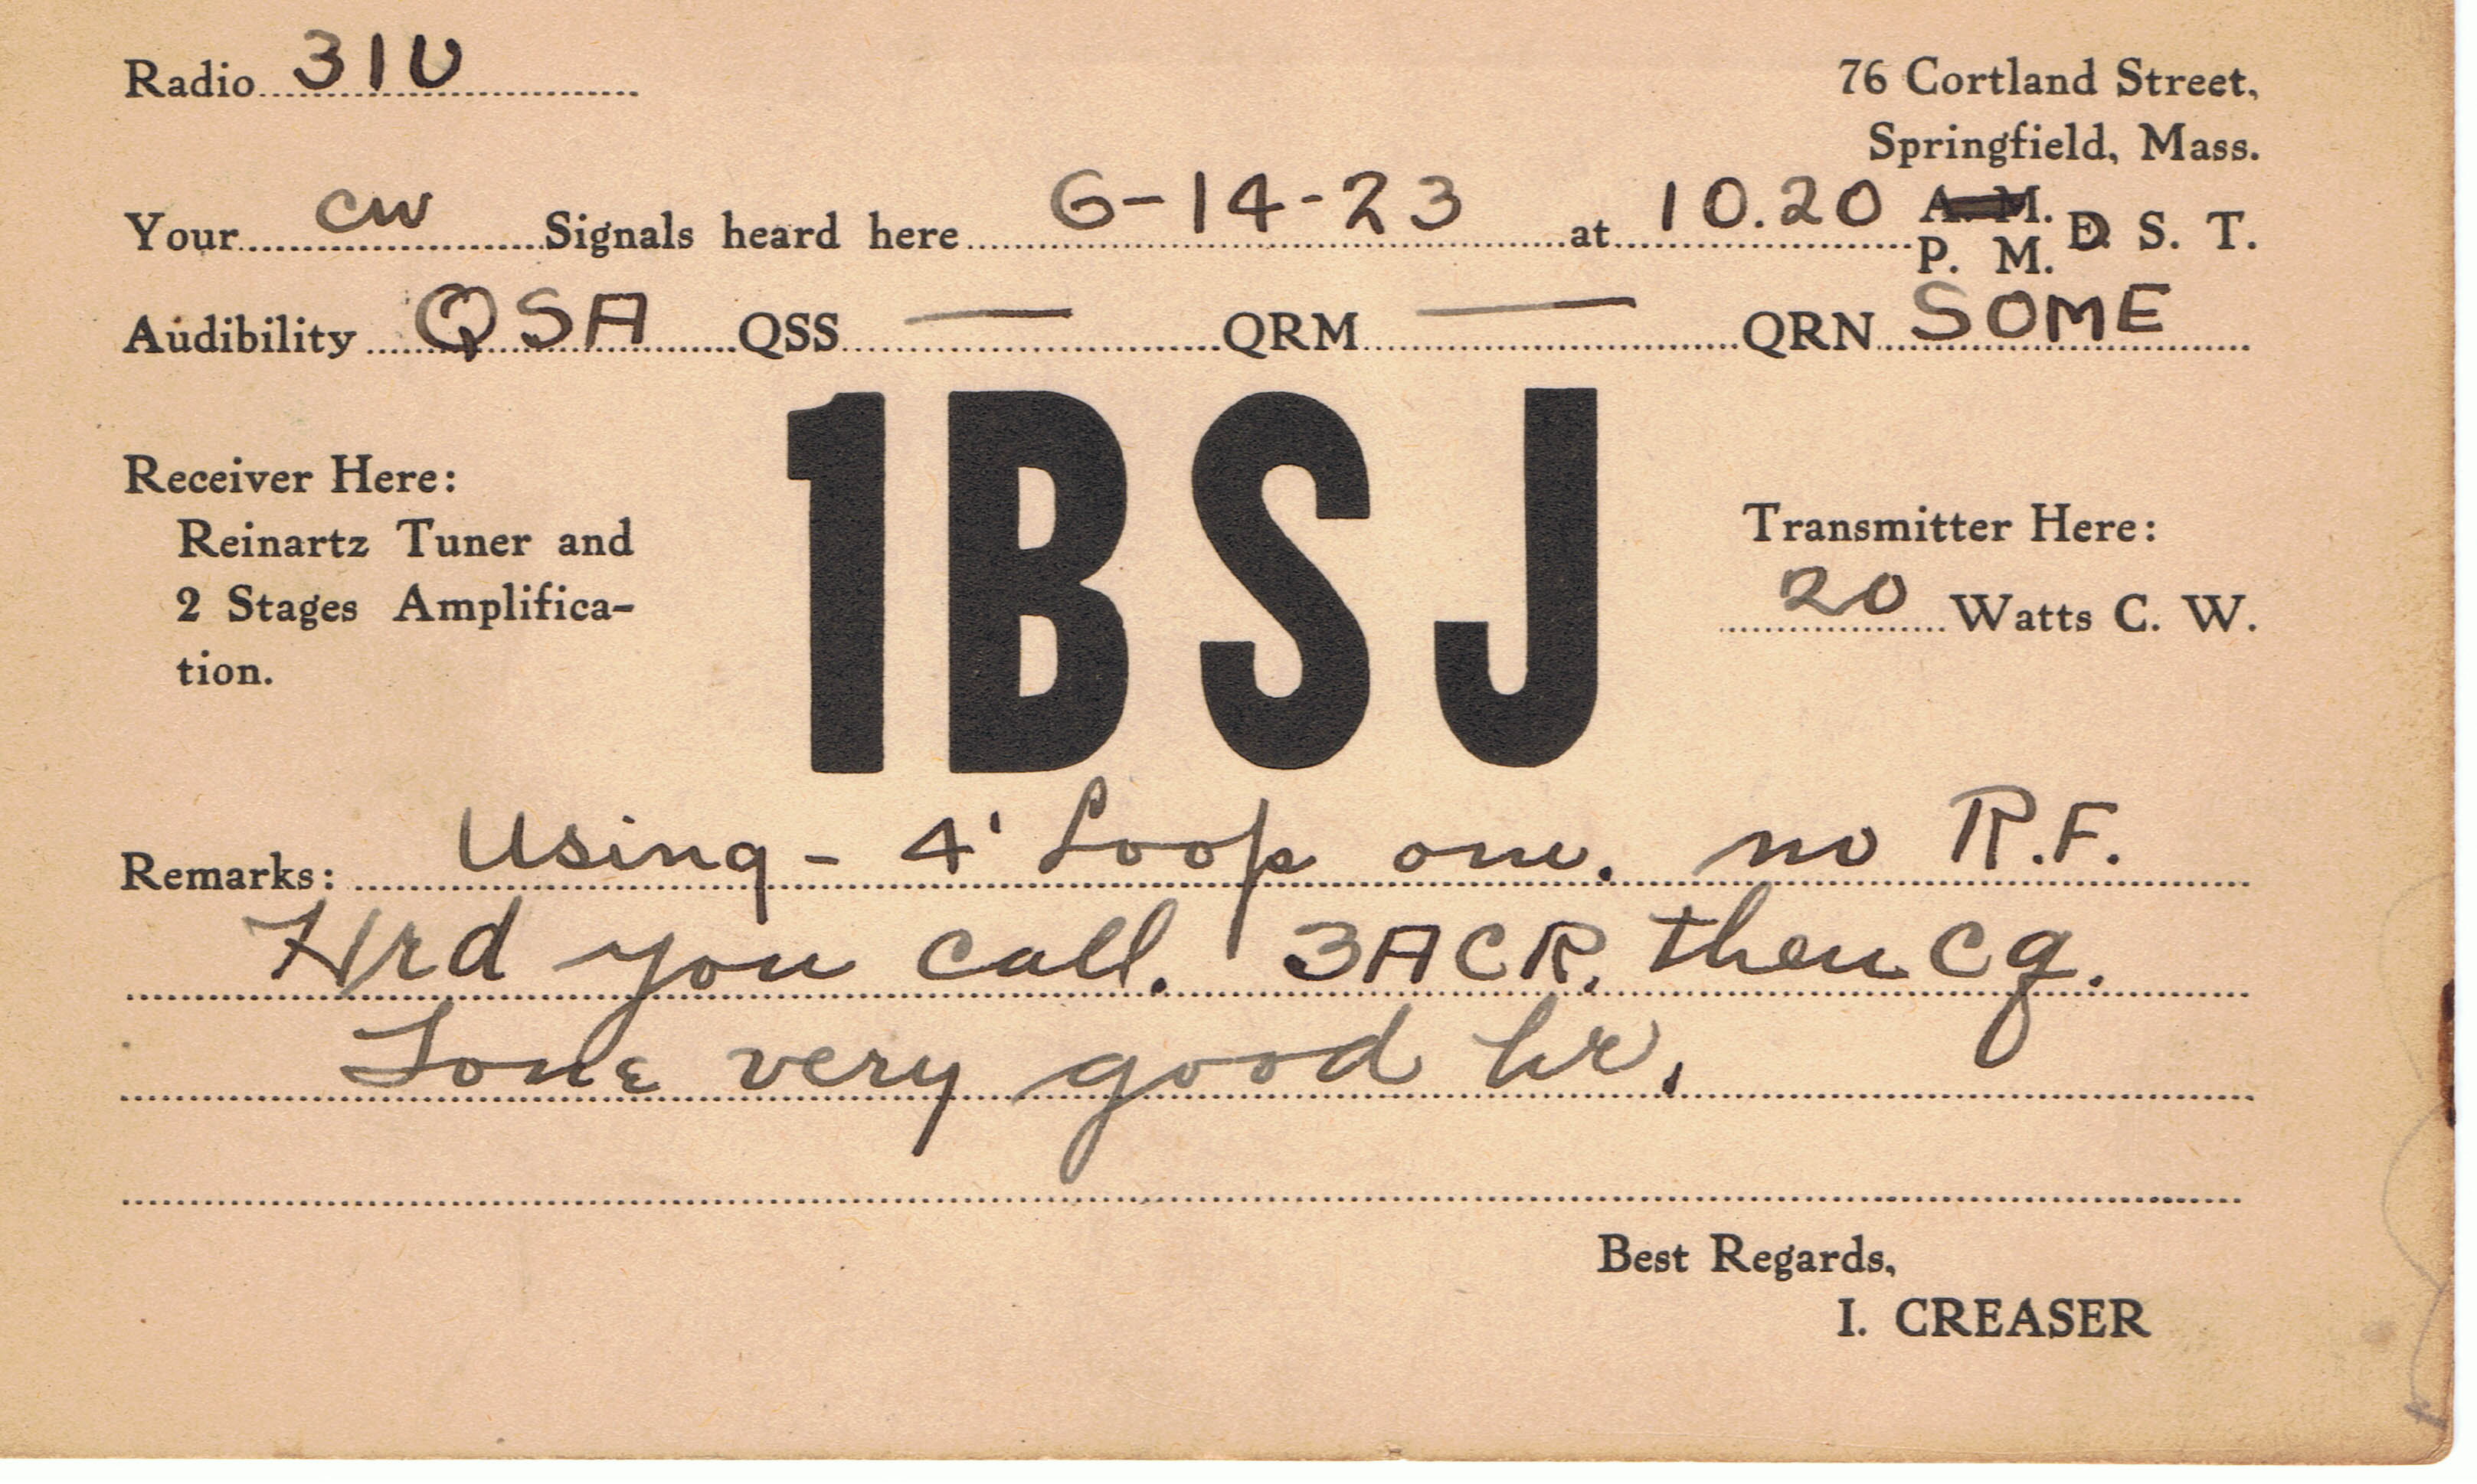 Radio 3IU
76 Cortland Street,
Springfield, Mass.
Your CW Signals heard here 6-14-23 at 10.20 A. M. P. M. D. S. T.
Audibility QSA QSS — QRM — QRN SOME
1BSJ
Receiver Here:
Reinartz Tuner and
2 Stages Amplifica-
tion.
Transmitter Here:
20 Watts C. W.
Remarks: Using - 4' Loop one. no R.F.
Hrd you call. 3ACR, then Cq.
Tone very good hr.
Best Regards,
I. CREASER